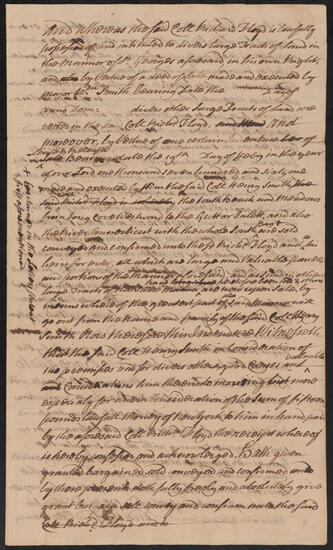 And whereas the said Coll Richard Floyd is lawfully
possessed of and intituled to divers Large Tracts of Land in
the Mannor of St. Georges aforesaid in his own Right,
and also by Vertue of a deed of sale made and executed by
major Wm Smith bearing date the Day of
Anno Dom: divers other Large Tracts of Land are
vested in the sd. Coll Richd Floyd, And
moreover, by Vertue of one certain
bearing date the 19th Day of Feby in the year
of our Lord one thousand seven hundred and Sixty, one
made and executed by him the said Coll Henry Smith,
said Richd Floyd the South beach and meadows
from Long cove westward to the Gutt or Inlett, and also
the River Connecticut with the whole South are sold
convey'd and confirmed unto the sd Richd Floyd and his
heirs for ever, all which are large and Valuable parcels
and portion of the Mannor aforesaid, and
Large Tracts of
means whereof the greatest part of said
go out from the name and family of the said Coll Henry
Smith Now therefore this Indenture Witnesseth
that the said Coll Henry Smith in Consideration of
the premises and for divers other good Causes and
valuable
Considerations him thereunto moving but more
especially for and in Consideration of the Sum of fifteen
pounds Lawfull Money of New york to him in hand paid
by the aforesaid Coll Richd Floyd the receipt whereof
is hereby confessed and acknowledged, Hath given
granted bargained sold conveyed and confirmed and
by these presents doth fully freely and absolutely give
grant bargain sell convey and confirm unto the said
Coll Richd Floyd and